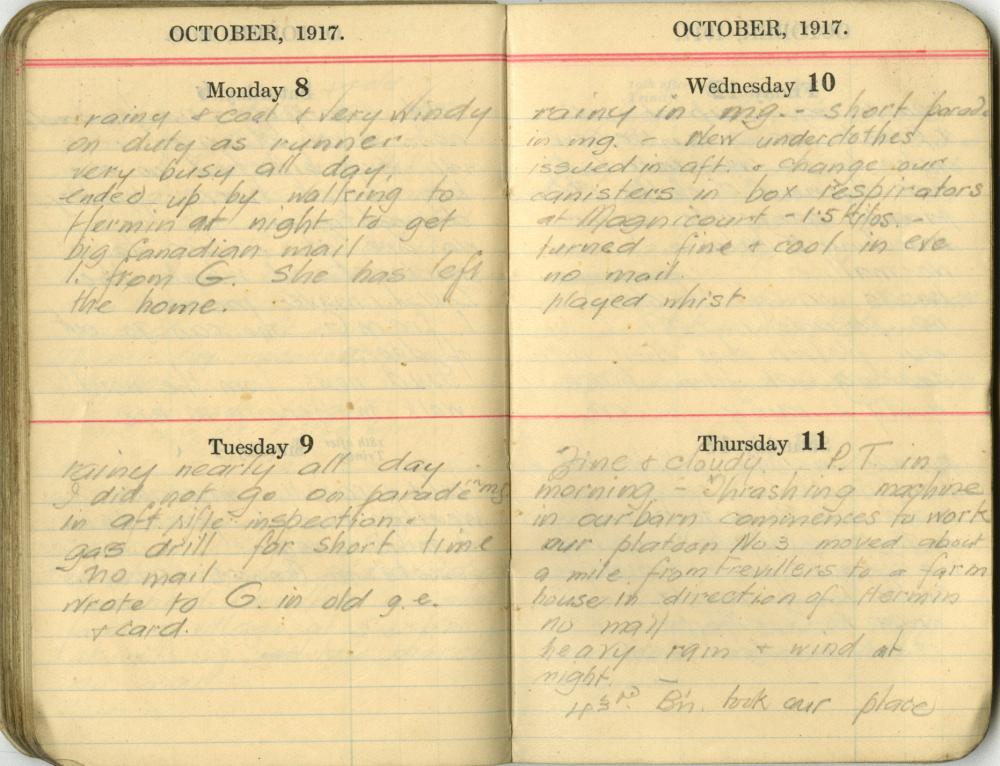 OCTOBER, 1917.
Monday 8
rainy & cool & very windy
on duty as runner
very busy all day,
ended up by walking to
Hermin at night to get
big Canadian mail
1. from G. She has left
the home.
Tuesday 9
rainy nearly all day
I did not go on parade in mg.
in aft. rifle inspection -
gas drill for short time
no mail
wrote to G. in old g.e.
& card.
OCTOBER, 1917.
Wednesday 10
rainy in mg. - short parade
in mg. - New underclothes
issued in aft. & change our
canisters in box respirators
at Magnicourt - 1.5 kilos. -
turned fine & cool in eve
no mail.
played whist
Thursday 11
Fine & cloudy. P.T. in
morning - Thrashing machine
in our barn commences to work
our platoon No 3 moved about
a mile from Frevillers to a farm
house in direction of Hermin
no mail
heavy rain & wind at
night.
43rd Bn. took our place